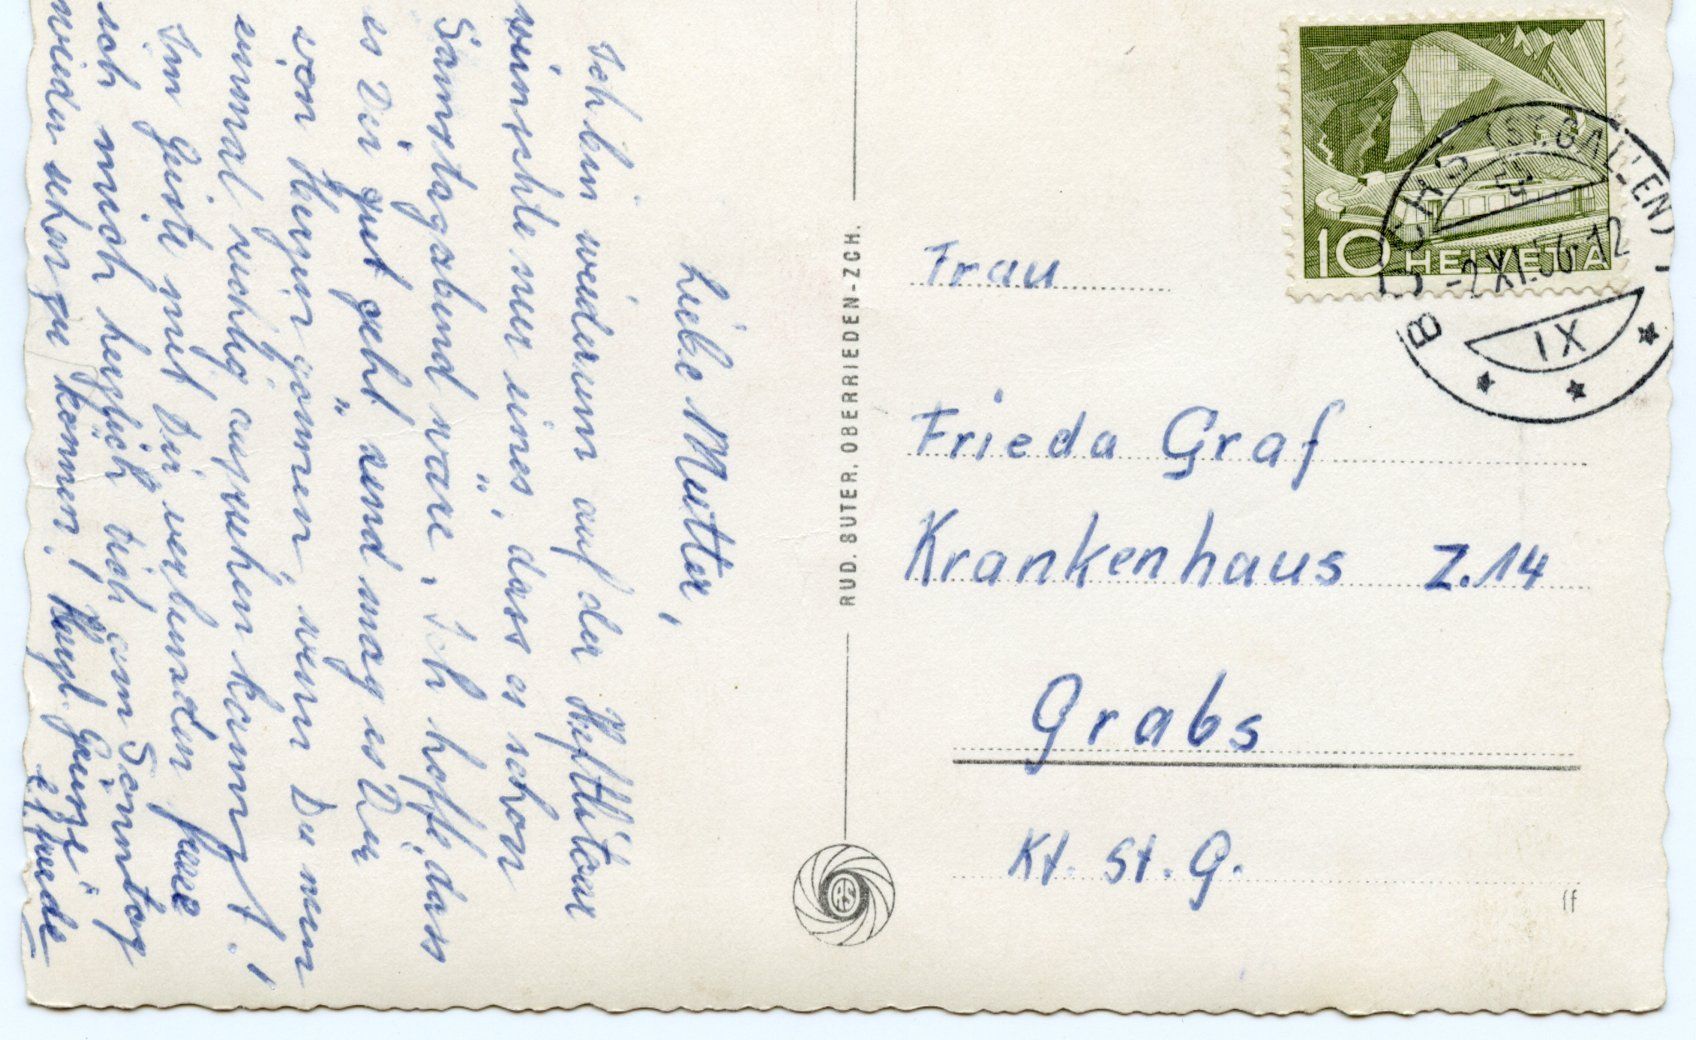 Liebe Mutter,
Ich bin wiederum auf der
wünschte nur eines, dass es schon
Samstagabend wäre. Ich hoffe, dass
es Dir gut geht und mag es Dir
von Herzen gönnen wenn Du nun
einmal richtig ausruhen kannst!
Im Geiste mit Dir verbunden freue
ich mich herzlich Dich am Sonntag
wieder sehen zu können! Herzl. Grüsse
RUD. SUTER, OBERRIEDEN-ZCH.
10 HELVETIA
BUCHS (ST. GALLEN)
-2.XI.56-12
IX
Frau
Frieda Graf
Krankenhaus Z.14
Grabs
Kt. St. G.
ff